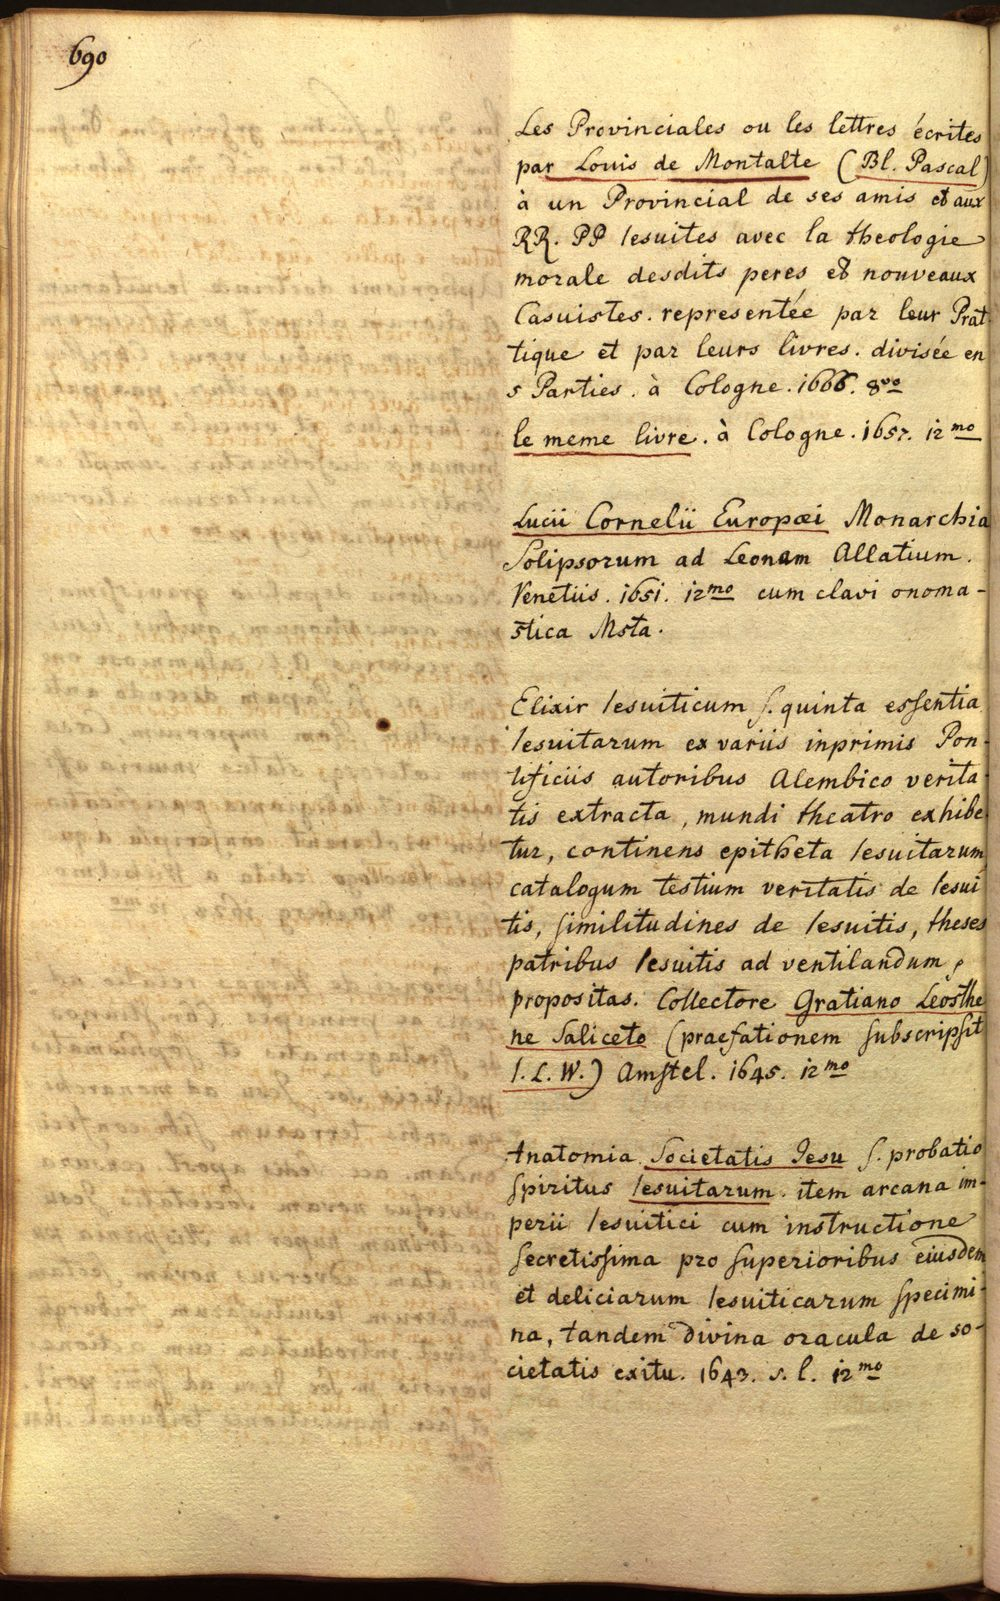 690
Les Provinciales ou les lettres écrites
par Louis de Montalte (Bl. Pascal)
à un Provincial de ses amis et aux
RR. PP Iesuites avec la theologie
morale desdits peres et nouveaux
Casuistes. representée par leur Prat
tique et par leurs livres. divisée en
5 Parties. à Cologne. 1666. 8vo
le meme livre. à Cologne. 1657. 12mo
Lucii Cornelii Europæi Monarchia
Solipsorum ad Leonam Allatium.
Venetiis. 1651. 12mo cum clavi onoma-
stica Msta.
Elixir Iesuiticum s. quinta essentia
Iesuitarum ex variis inprimis Pon-
tificiis autoribus Alembico verita-
tis extracta, mundi theatro exhibe
tur, continens epitheta Iesuitarum
catalogum testium veritatis de Iesui
tis, similitudines de Iesuitis, theses
patribus Iesuitis ad ventilandum
propositas. Collectore Gratiano Leosthe
ne Saliceto (praefationem subscripsit
I. L. W.) Amstel. 1645. 12mo
Anatomia Societatis Jesu s. probatio
spiritus Iesuitarum. item arcana im-
perii Iesuitici cum instructione
secretissima pro superioribus eiusdem
et deliciarum Iesuiticarum specimi-
na, tandem divina oracula de so-
cietatis exitu. 1643. s. l. 12mo